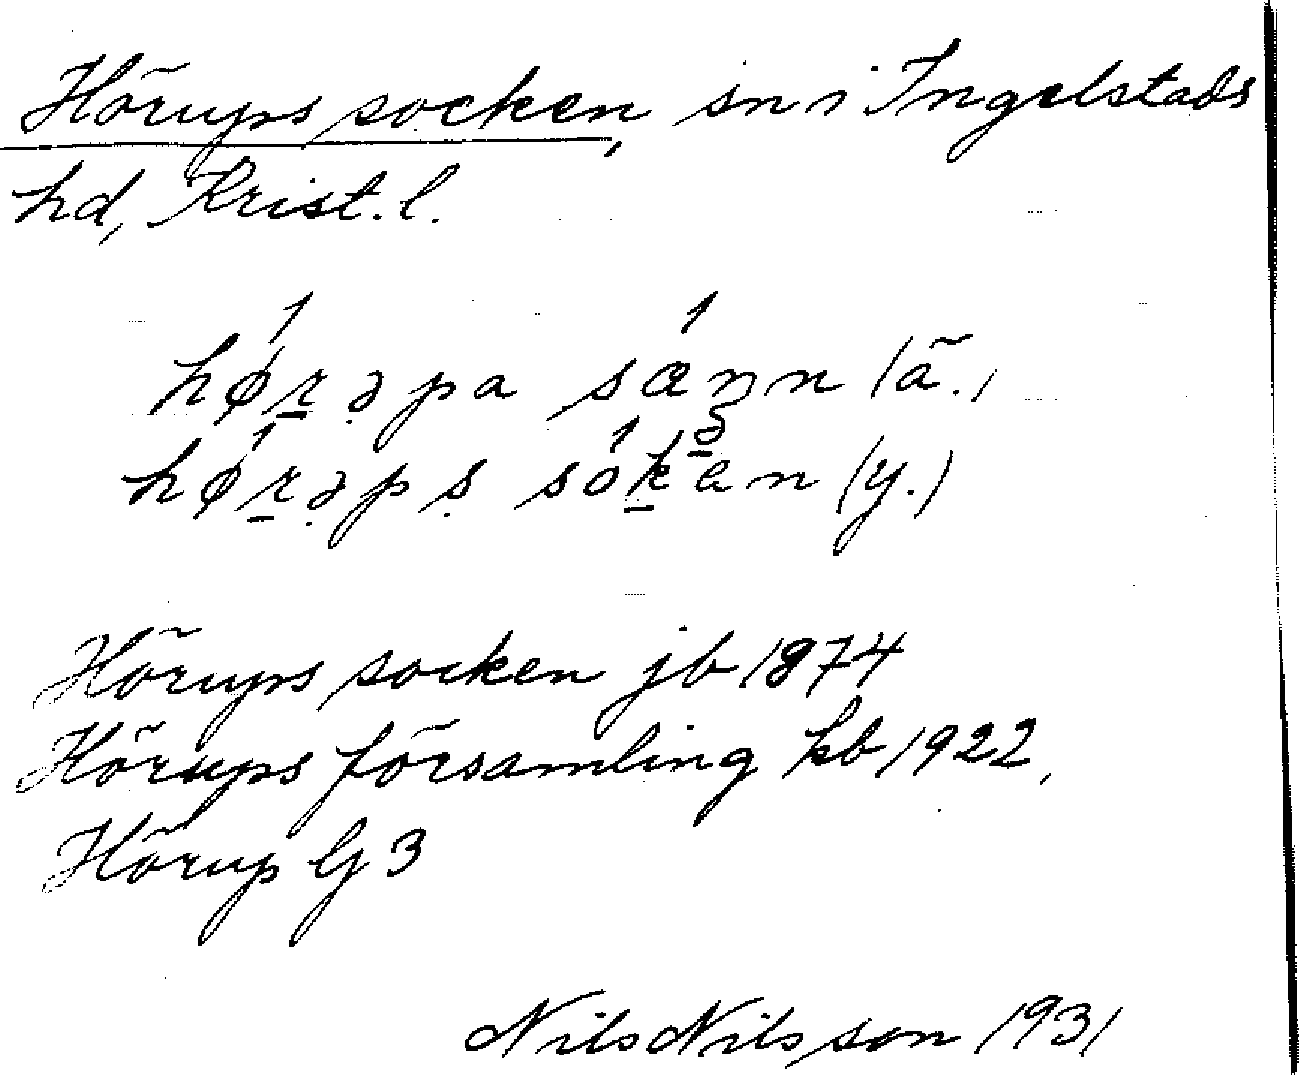 Hörups socken, sn i Ingelstads
hd, Krist. l.
hø̱ŕəpa sænn (ä.)
hø̱ŕəps sókən (y.)
Hörups socken jb 1874
Hörups församling kb 1922,
Hörup G 3
Nils Nilsson 1931